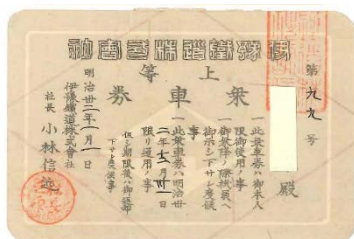 伊豫鐵道株式會社
上等
乗車券
第九九号
殿
一此乗車券ハ御本人
限御使用ノ事
一御乗車ノ際掛員ヘ
御示シ下サレ度候
事
一此乗車券ハ明治廿
二年十二月卅一日
限リ通用ノ事
但シ期限後ハ御返却
下サレ度候事
明治廿二年一月一日
伊豫鐵道株式會社
社長 小林信近